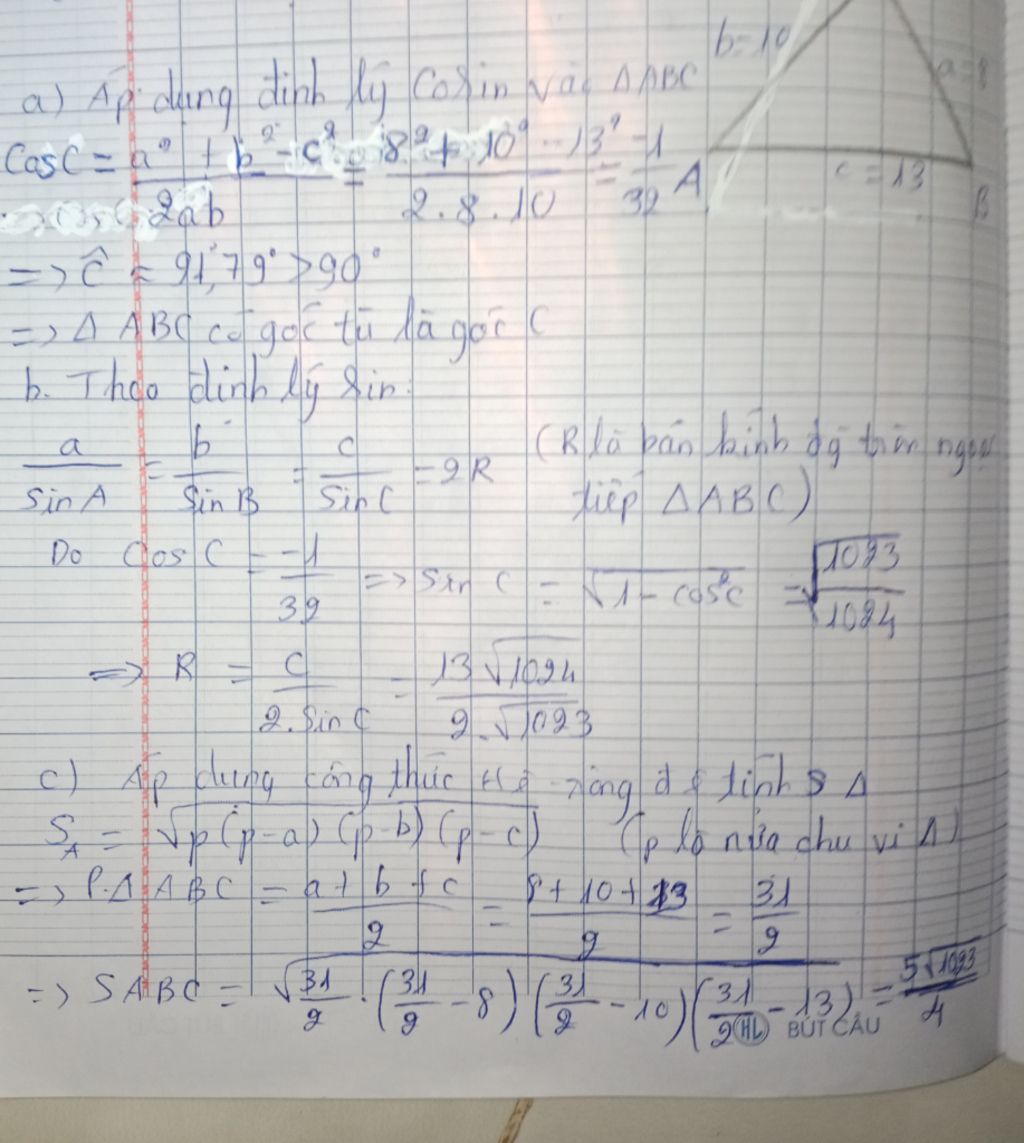 b=10
a=8
c=13
A
B
a) Áp dụng định lý Cosin vào ΔABC
CosC = (a² + b² - c²)/(2ab) = (8² + 10² - 13²)/(2.8.10) = -1/32
=> Ĉ = 91,79° > 90°
=> Δ ABC có góc tù là góc C
b. Theo định lý Sin:
a/SinA = b/SinB = c/SinC = 2R (R là bán kính đg tròn ngoại
tiếp ΔABC)
Do CosC = -1/32 => Sin C = √(1 - cos²C) = √(1023/1024)
=> R = C/(2.SinC) = 13√1024/(2.√1023)
c) Áp dụng công thức Hê-rông để tính S Δ
SΔ = √(p(p-a)(p-b)(p-c)) (p là nửa chu vi Δ)
=> P.ΔABC = (a+b+c)/2 = (8+10+13)/2 = 31/2
=> SABC = √(31/2.(31/2-8)(31/2-10)(31/2-13)) = 5√1023/4
HL BÚT CÂU